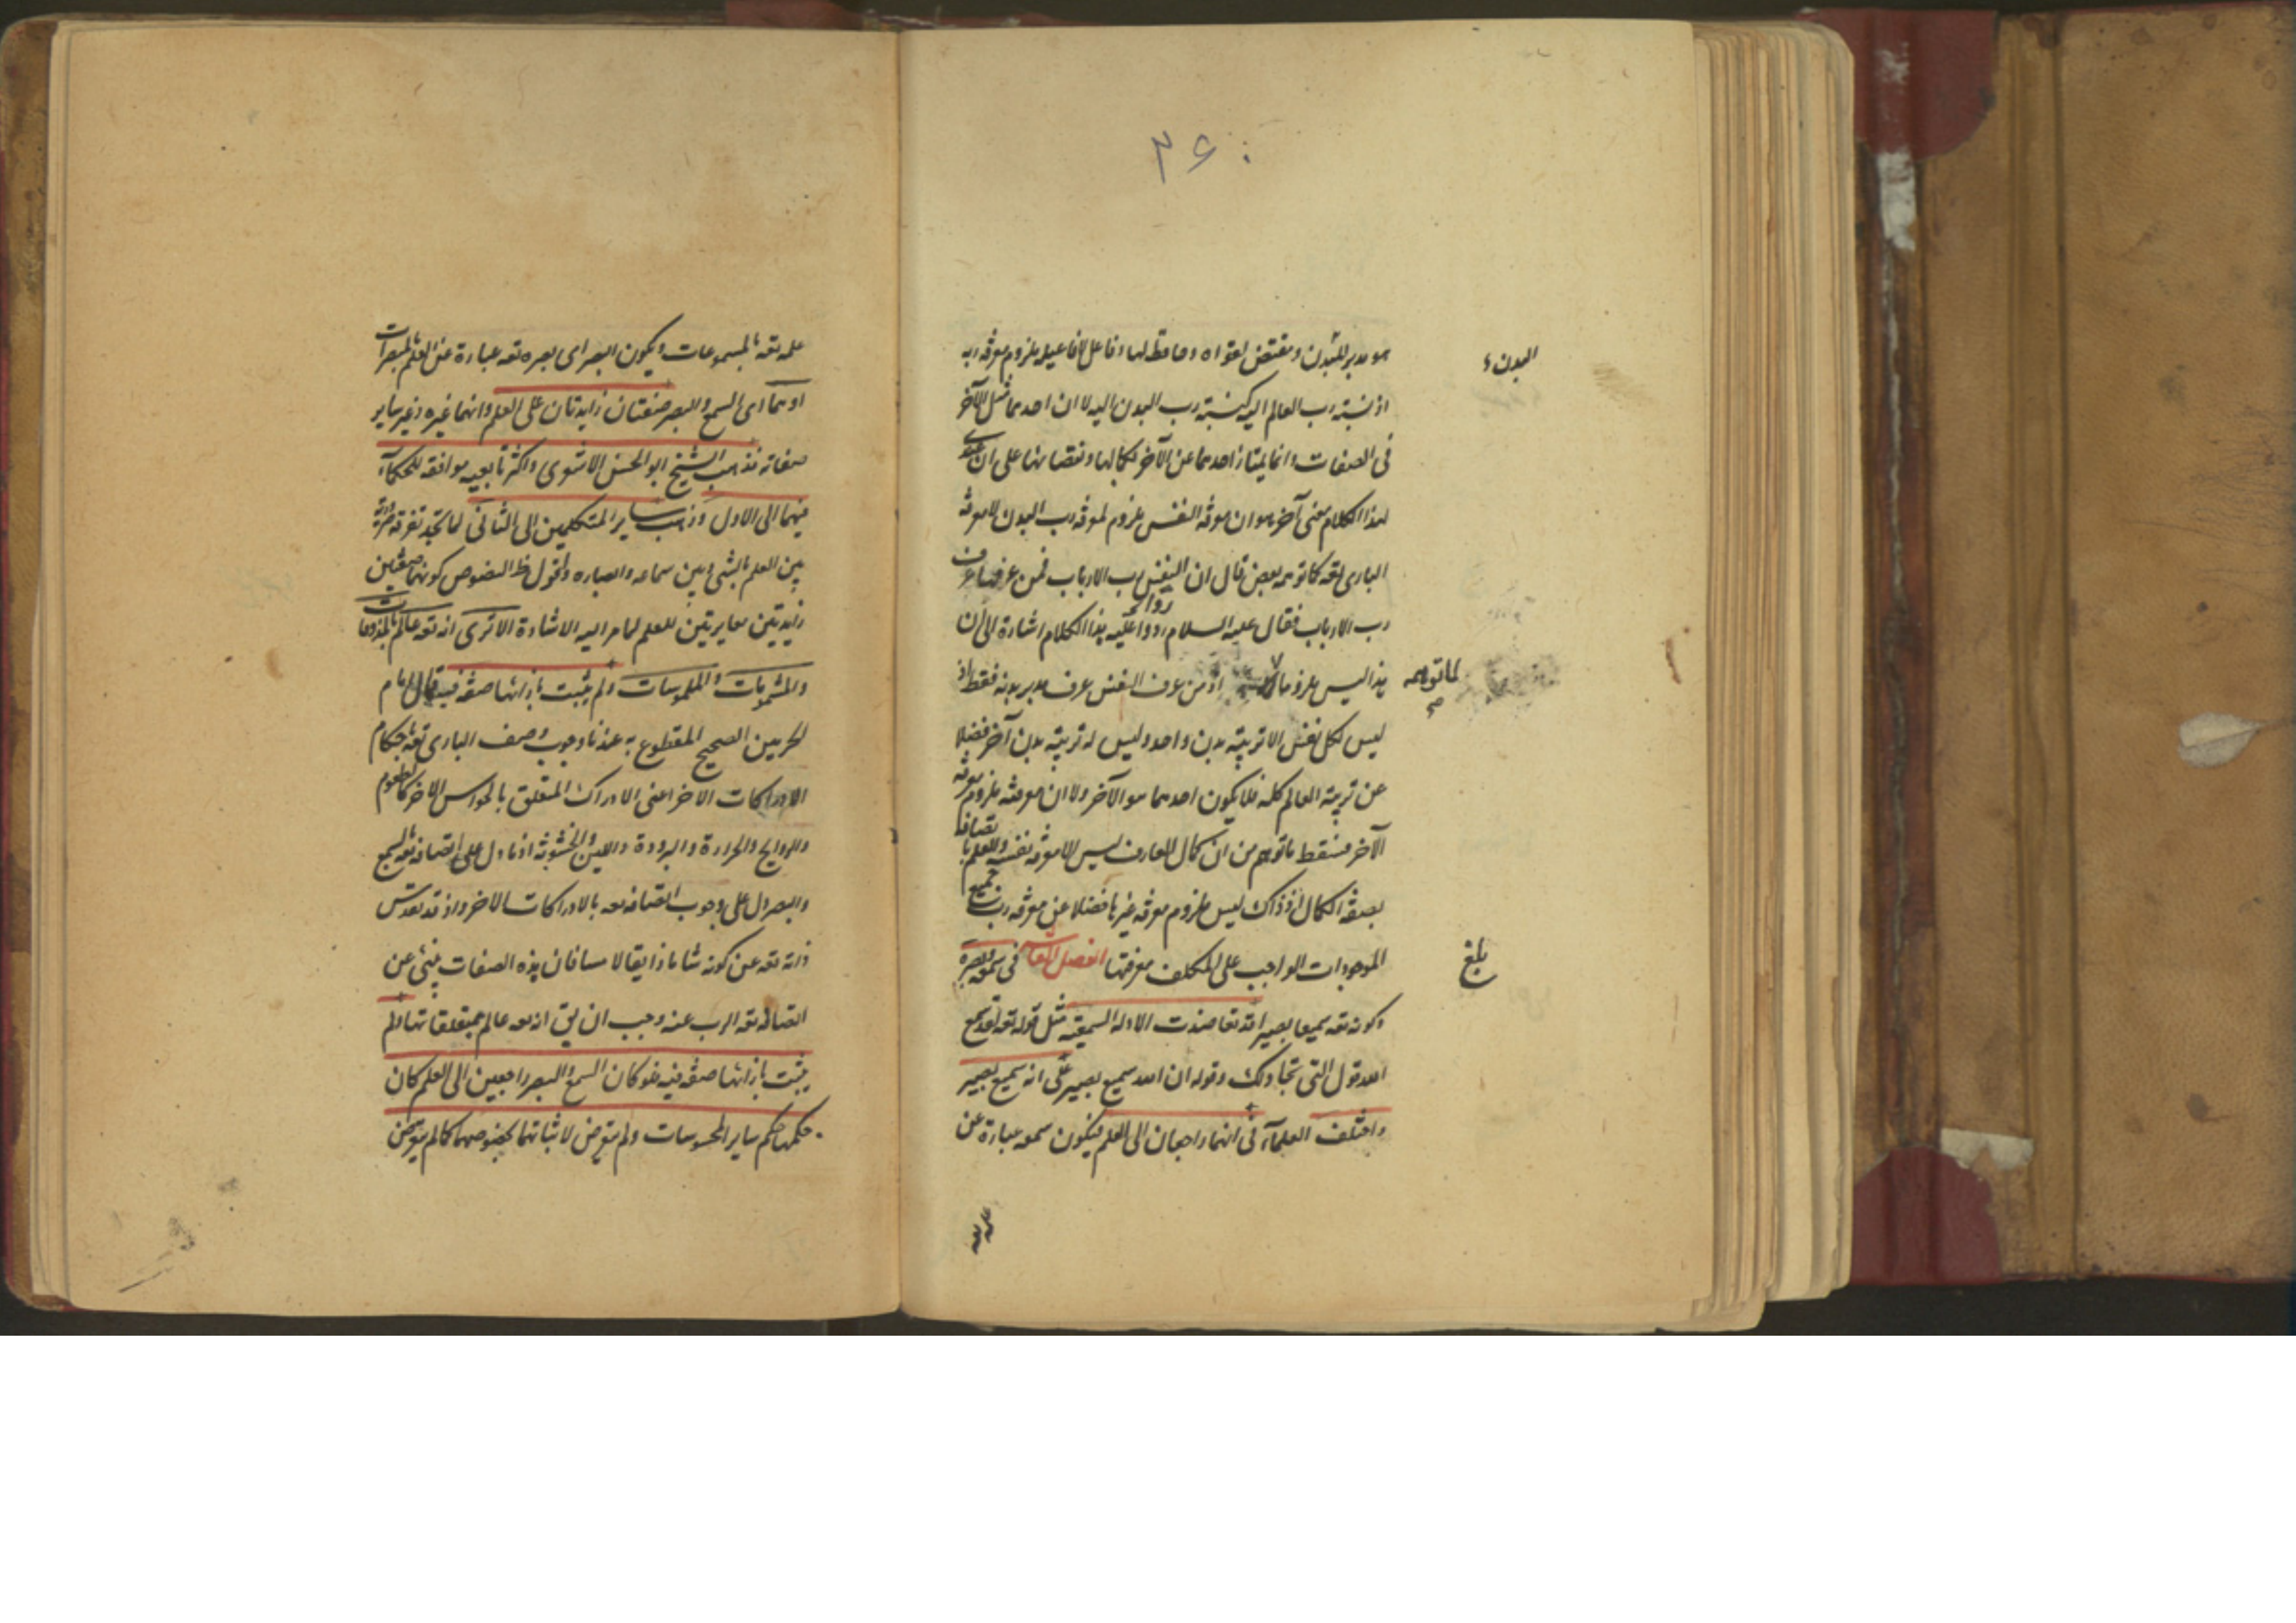 ٣٤٠
هو مدبر للبدن ومقتض لقواه وحافظ لها وفاعل لافاعيله ملزوم معرفة ربه
البدن
اذ نسبة رب العالم اليه كنسبة رب البدن اليه لا ان احدهما مثل الآخر
فى الصفات وانما يمتاز احدهما عن الآخر بكمالها ونقصانها على ان
لهذا الكلام معنى آخر هو ان معرفة النفس ملزوم لمعرفة رب البدن لا معرفة
البارى تعه كما توهمه بعض قال ان النفس رب الارباب فمن عرفها عرف
رب الارباب فقال عليه السلام ردا عليه بهذا الكلام اشارة الى ان
هذا ليس ملزوما اذ من عرف النفس عرف مدبر بدنه فقط اذ
لما توهمه صح
ليس لكل نفس الا تربية بدن واحد وليس له تربية بدن آخر فضلا
عن تربية العالم كله فلا يكون احدهما هو الآخر ولا ان معرفته ملزوم معرفة
الآخر فسقط ما توهم من ان كمال العارف ليس الا معرفة نفسه والعلم باتصافها
بصفة الكمال اذ ذاك ليس ملزوم معرفة غيرها فضلا عن معرفة رب جميع
الموجودات الواجب على المكلف معرفتها الفصل فى سمعه وبصره
بلغ
وكونه تعه سميعا بصيرا قد تعاضدت الادلة السمعية مثل قوله تعه لقد سمع
الله قول التى تجادلك وقوله ان الله سميع بصير على انه سميع بصير
واختلف العلماء فى انهما راجعان الى العلم فيكون سمعه عبارة عن
علمه تعه
علمه تعه بالمسموعات ويكون البصر اى بصره تعه عبارة عن العلم بالمبصرات
او هما اى السمع والبصر صفتان زايدتان على العلم وانهما غيره وغير ساير
صفاته فذهب الشيخ ابو الحسن الاشعرى واكثر تابعيه موافقة للحكماء
فيهما الى الاول وذهب ساير المتكلمين الى الثانى لما تجد تفرقة ضرورية
بين العلم بالشئ وبين سماعه وابصاره ولقول ظ النصوص كونهما صفتين
زايدتين مغايرتين للعلم لما مر اليه الاشارة الا ترى انه تعه عالم بالمذوقات
والمشمومات والملموسات ولم يثبت بازائها صفة فيه قال امام
الحرمين الصحيح المقطوع به عندنا وجوب وصف البارى تعه باحكام
الادراكات الاخر اعنى الادراك المتعلق بالحواس الاخر كالطعوم
والروايح والحرارة والبرودة واللين والخشونة اذ ما دل على اتصافه تعه بالسمع
والبصر دل على وجوب اتصافه تعه بالادراكات الاخر واذ قد تقدس
ذاته تعه عن كونه شاما ذايقا لامسا فان هذه الصفات ينبئ عن
اتصاله تعه الرب عنه وجب ان يق انه تعه عالم بمتعلقاتها ولم
يثبت بازائها صفة فيه فلو كان السمع والبصر راجعين الى العلم كان
حكمهما حكم ساير المحسوسات ولم يتعرض لاثباتهما بخصوصهما كما لم يتعرض